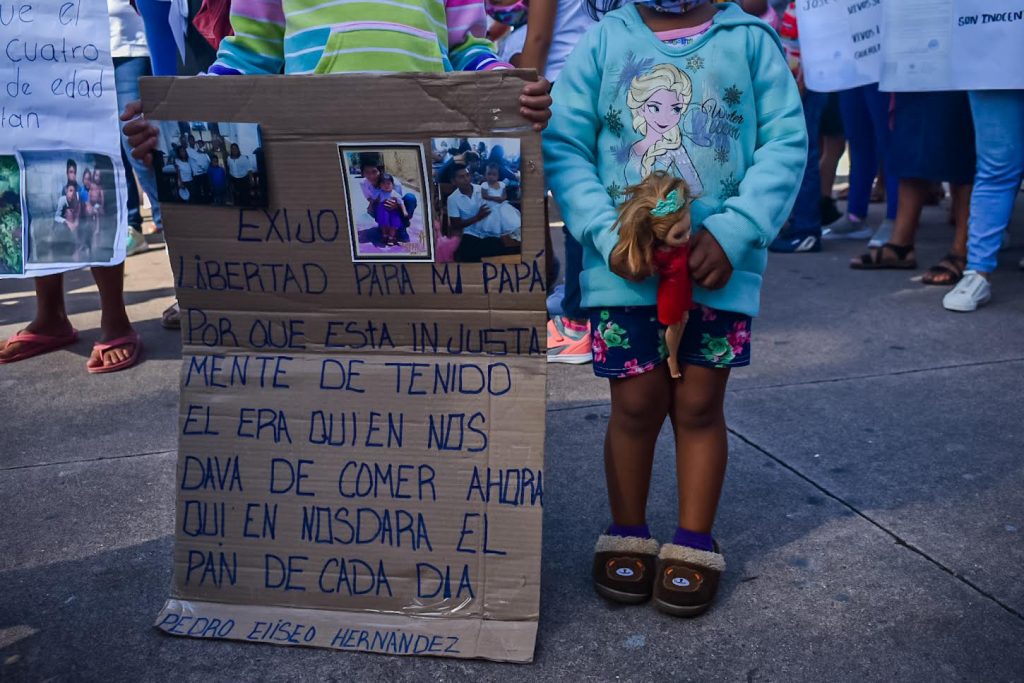 ue el
cuatro
de edad
tlan
EXIJO
LIBERTAD PARA MI PAPÁ
POR QUE ESTA INJUSTA
MENTE DE TENIDO
EL ERA QUIEN NOS
DAVA DE COMER AHORA
QUI EN NOSDARA EL
PAN DE CADA DIA
PEDRO ELISEO HERNANDEZ
Winter
JOSÉ
VIVOS
SON INOCENT